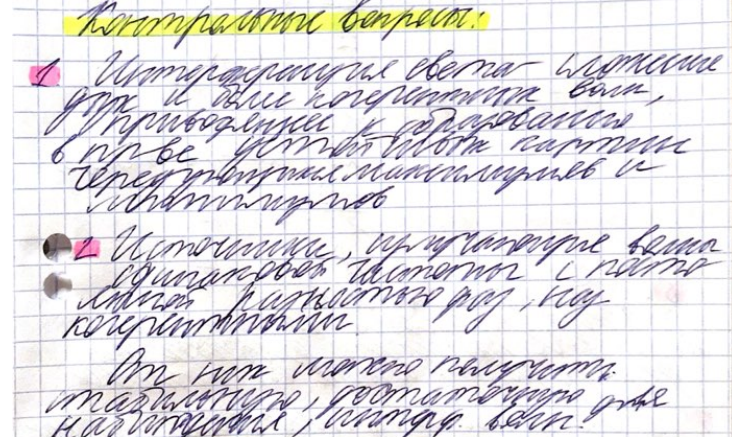 Контрольные вопросы:
1 Интерференция света - сложение
двух и более когерентных волн,
приводящее к образованию
в пр-ве устойчивых картины
чередующихся максимумов и
минимумов
2 Источники, излучающие волны
одинаковой частоты с посто
янной разностью фаз, наз
когерентными.
От них можно получить
стабильную, достаточную для
наблюдения, интерф. волн.